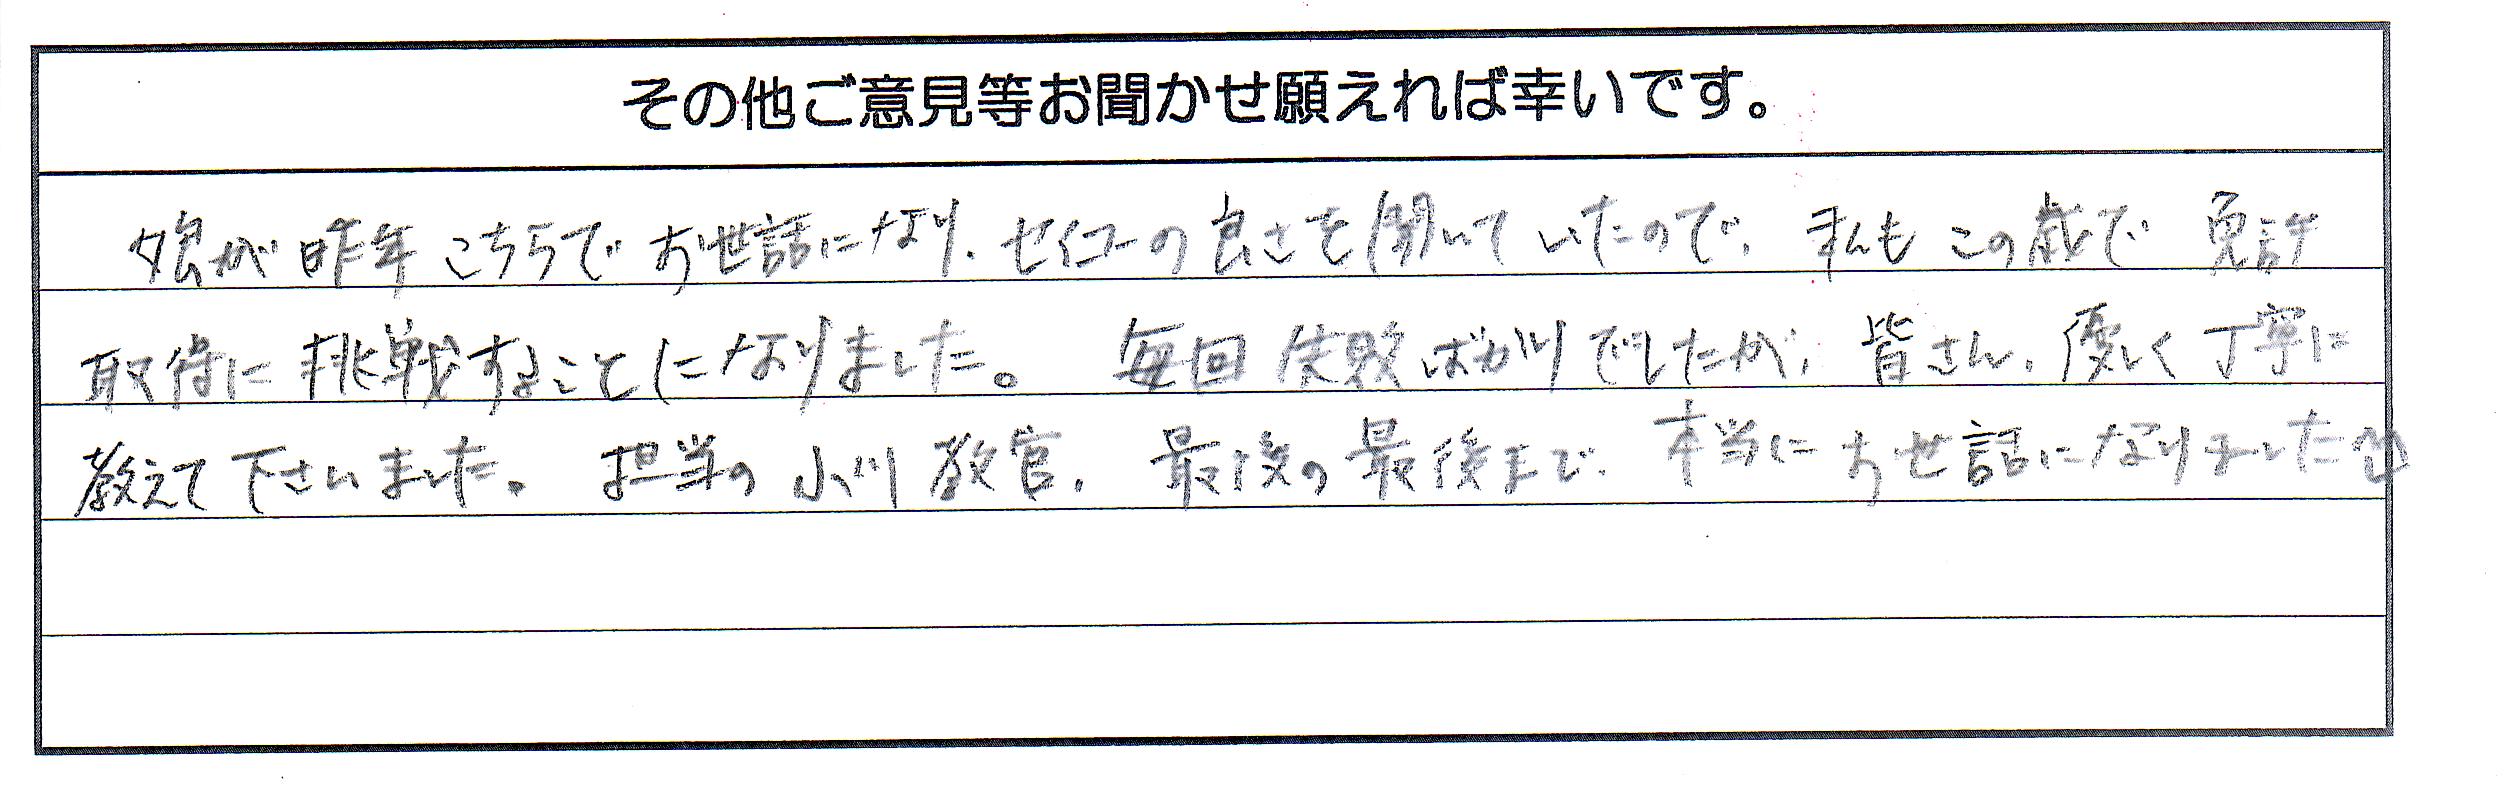 その他ご意見等お聞かせ願えれば幸いです。
娘が昨年こちらでお世話になり、セイコーの良さを聞いていたので、私もこの歳で免許
取得に挑戦することになりました。毎回失敗ばかりでしたが、皆さん、優しく丁寧に
教えて下さいました。担当の小川教官、最後の最後まで、本当にお世話になりました